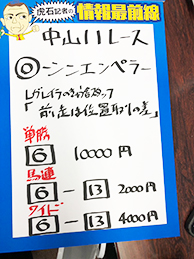 虎石記者の
情報最前線
中山11レース
◎シンエンペラー
「前走は位置取りの差」
単勝
6 10000円
馬連
6-13 2000円
ワイド
6-13 4000円